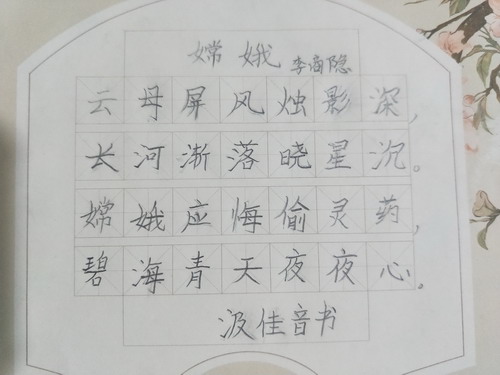 嫦娥 李商隐
云母屏风烛影深，
长河渐落晓星沉。
嫦娥应悔偷灵药，
碧海青天夜夜心。
汲佳音书